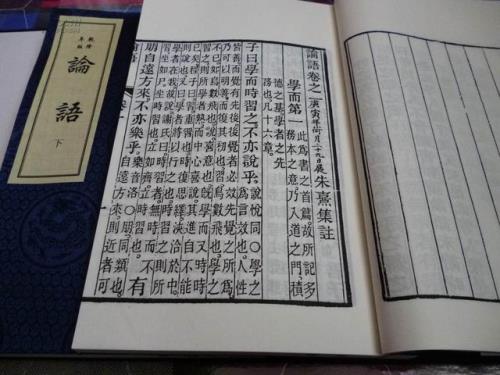 論語
下
論語卷之一 庚寅年荷月二十九日展 朱熹集註
學而第一 此為書之首篇故所記多
務本之意乃入道之門積
德之基學者之先
務也凡十六章
子曰學而時習之不亦說乎 說悅同○學之
為言效也人性
皆善而覺有先後後覺者必效先覺之所為
乃可以明善而復其初也習鳥數飛也學之
不已如鳥數飛也說喜意也既學而又時時
習之則所學者熟而中心喜說其進自不能
已矣程子曰習重習也時復思繹浹洽於中
則說也又曰學者將以行之也時習之則所
學者在我故說謝氏曰時習者無時而不
習坐如尸坐時習也立如齊立時習也 有
朋自遠方來不亦樂乎 樂音洛○朋同類也
自遠方來則近者可